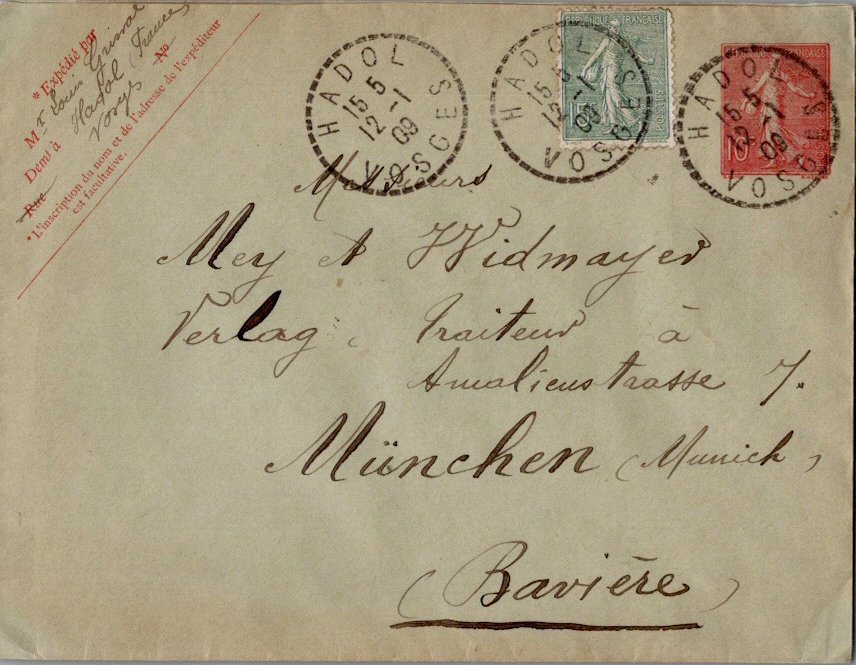 * Expédié par
Mr Louis Grisval
Demt à Hadol (France)
Vosges
Rue No
*L'inscription du nom et de l'adresse de l'expéditeur
est facultative.
HADOL
15 5
12 -1
09
VOSGES
HADOL
15 5
12 -1
09
VOSGES
REPUBLIQUE FRANÇAISE
15
HADOL
15 5
12 -1
09
VOSGES
FRANÇAISE
10
Messieurs
Mey et Widmayer
Verlag, Traiteur à
Amalienstrasse 7.
München (Munich)
(Bavière)